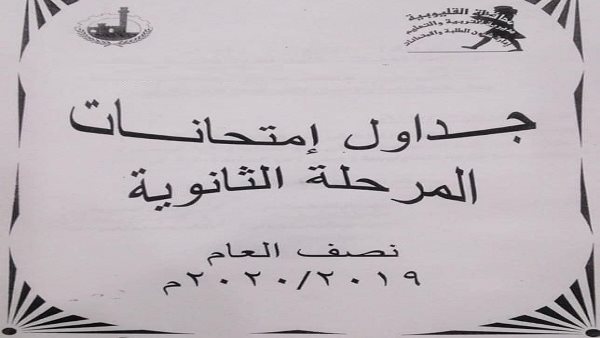 محافظة القليوبية
مديرية التربية والتعليم
إدارة شئون الطلبة والامتحانات
جداول إمتحانات
المرحلة الثانوية
نصف العام
٢٠٢٠/٢٠١٩م